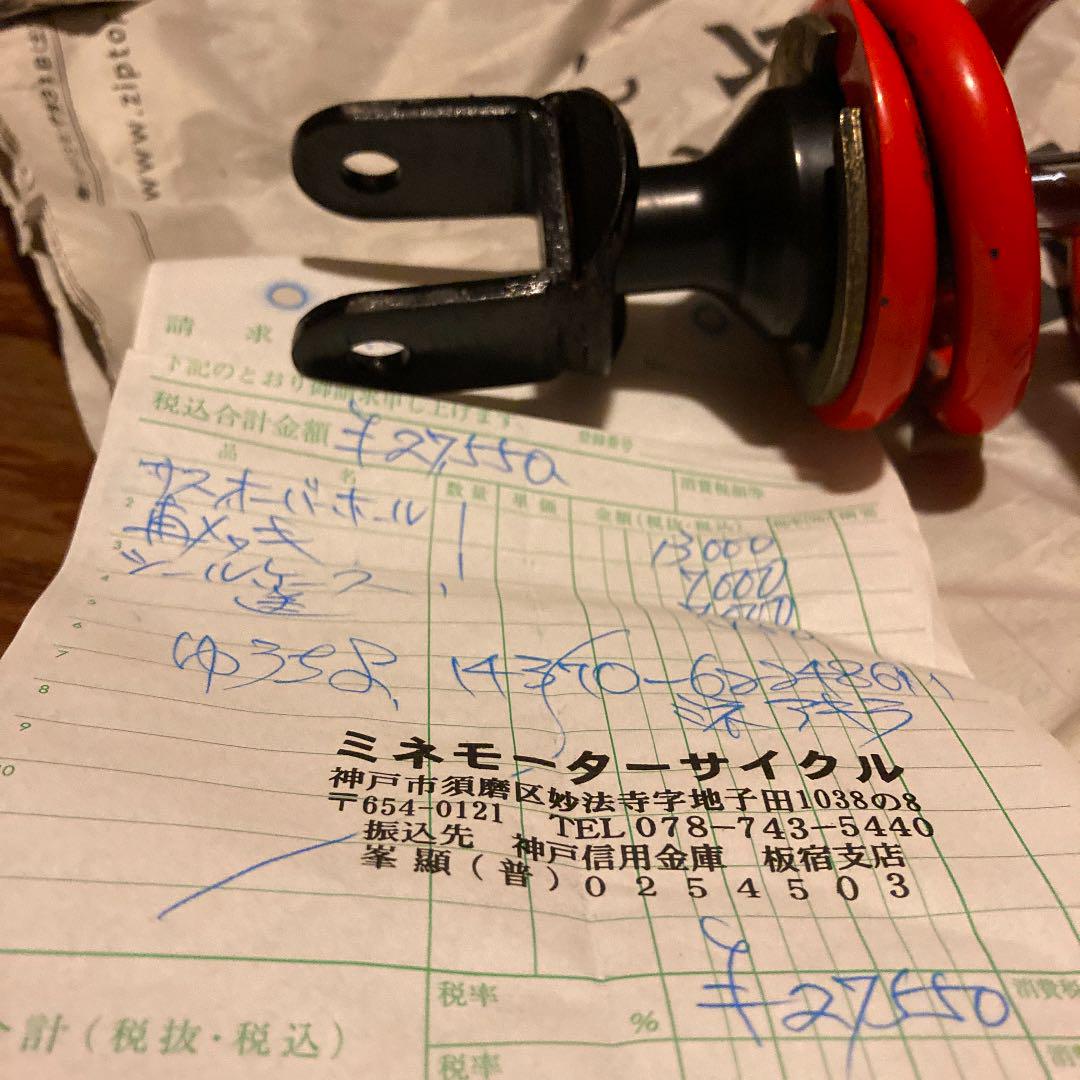 www.zipto
請 求
下記のとおり御請求申し上げます。
登録番号
税込合計金額 ¥27,550
消費税額等
品 名 数量 単価 金額(税抜・税込)
サスオーバーホール 1 13000
2 再メッキ 7000
3 シールケース 1
4 送
5
6
7 ゆうちょ 14370-
ミネ アキラ
8
9
10
ミネモーターサイクル
神戸市須磨区妙法寺字地子田1038の8
〒654-0121 TEL 078-743-5440
振込先 神戸信用金庫 板宿支店
峯 顯(普)0254503
税率 % ¥27,550 消費税
計(税抜・税込)
税率